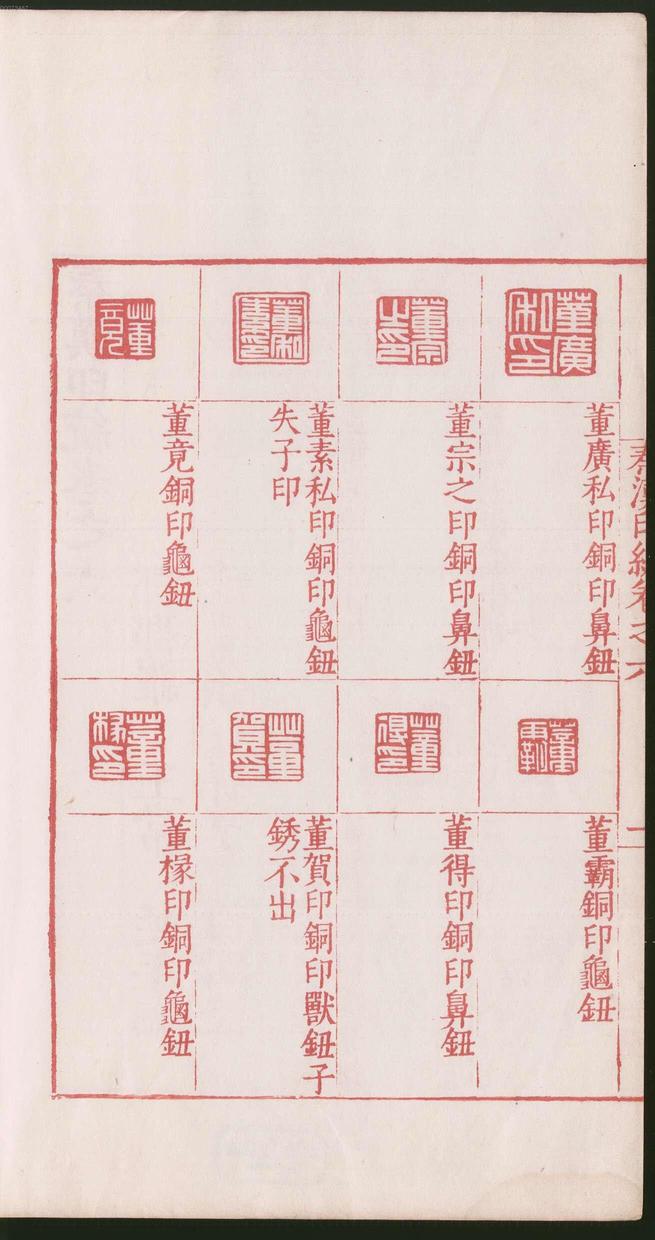 秦漢印統卷之六
一
董廣私印
董廣私印銅印鼻鈕
董宗之印
董宗之印銅印鼻鈕
董素私印
董素私印銅印龜鈕
失子印
董竟
董竟銅印龜鈕
董霸
董霸銅印龜鈕
董得印
董得印銅印鼻鈕
董賀印
董賀印銅印獸鈕子
銹不出
董椽印
董椽印銅印龜鈕